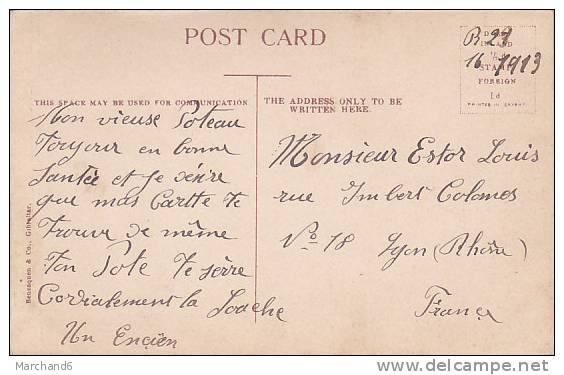 POST CARD
B 27
16 1913
INLAND
½d
STAMP
FOREIGN
1d
THIS SPACE MAY BE USED FOR COMMUNICATION
THE ADDRESS ONLY TO BE
WRITTEN HERE.
Mon vieuse Poteau
Toujour en bonne
Santée et je désire
que mas Cartte te
Trouve de même
Ton Pote te sèrre
Cordialement la Louche
Un Ençien
Monsieur Estor Louis
rue Imbert Colomes
No 18 Lyon (Rhône)
França
Benzaquen & Co., Gibraltar.
Marchand6
delcampe.net